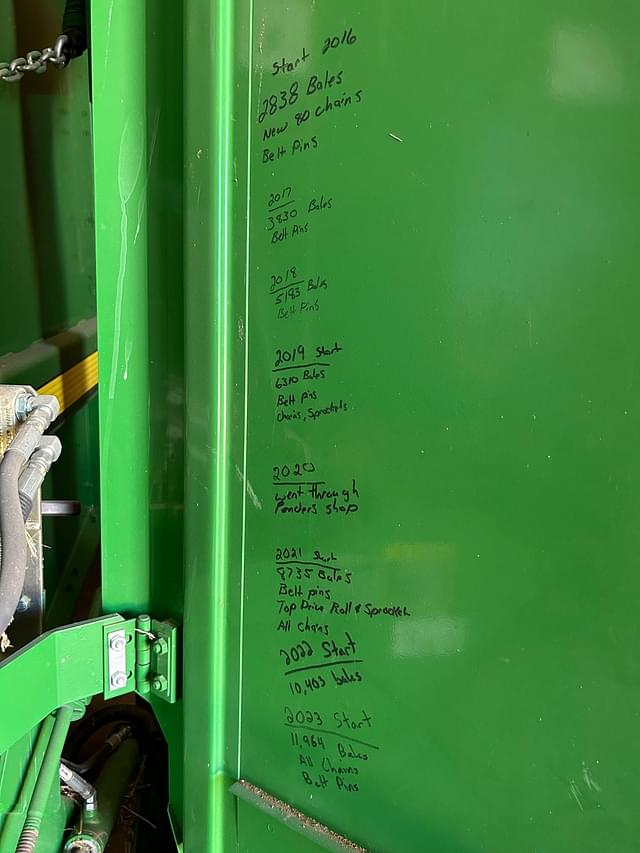 Start 2016
2838 Bales
New 80 chains
Belt Pins
2017
3830 Bales
Belt Pins
2018
5193 Bales
Belt Pins
2019 Start
6310 Bales
Belt Pins
Chains, Sprockets
2020
went through
Penders shop
2021 Start
8735 Bales
Belt pins
Top Drive Roll & Sprocket
All chains
2022 Start
10,403 bales
2023 Start
11,964 Bales
All Chains
Belt Pins